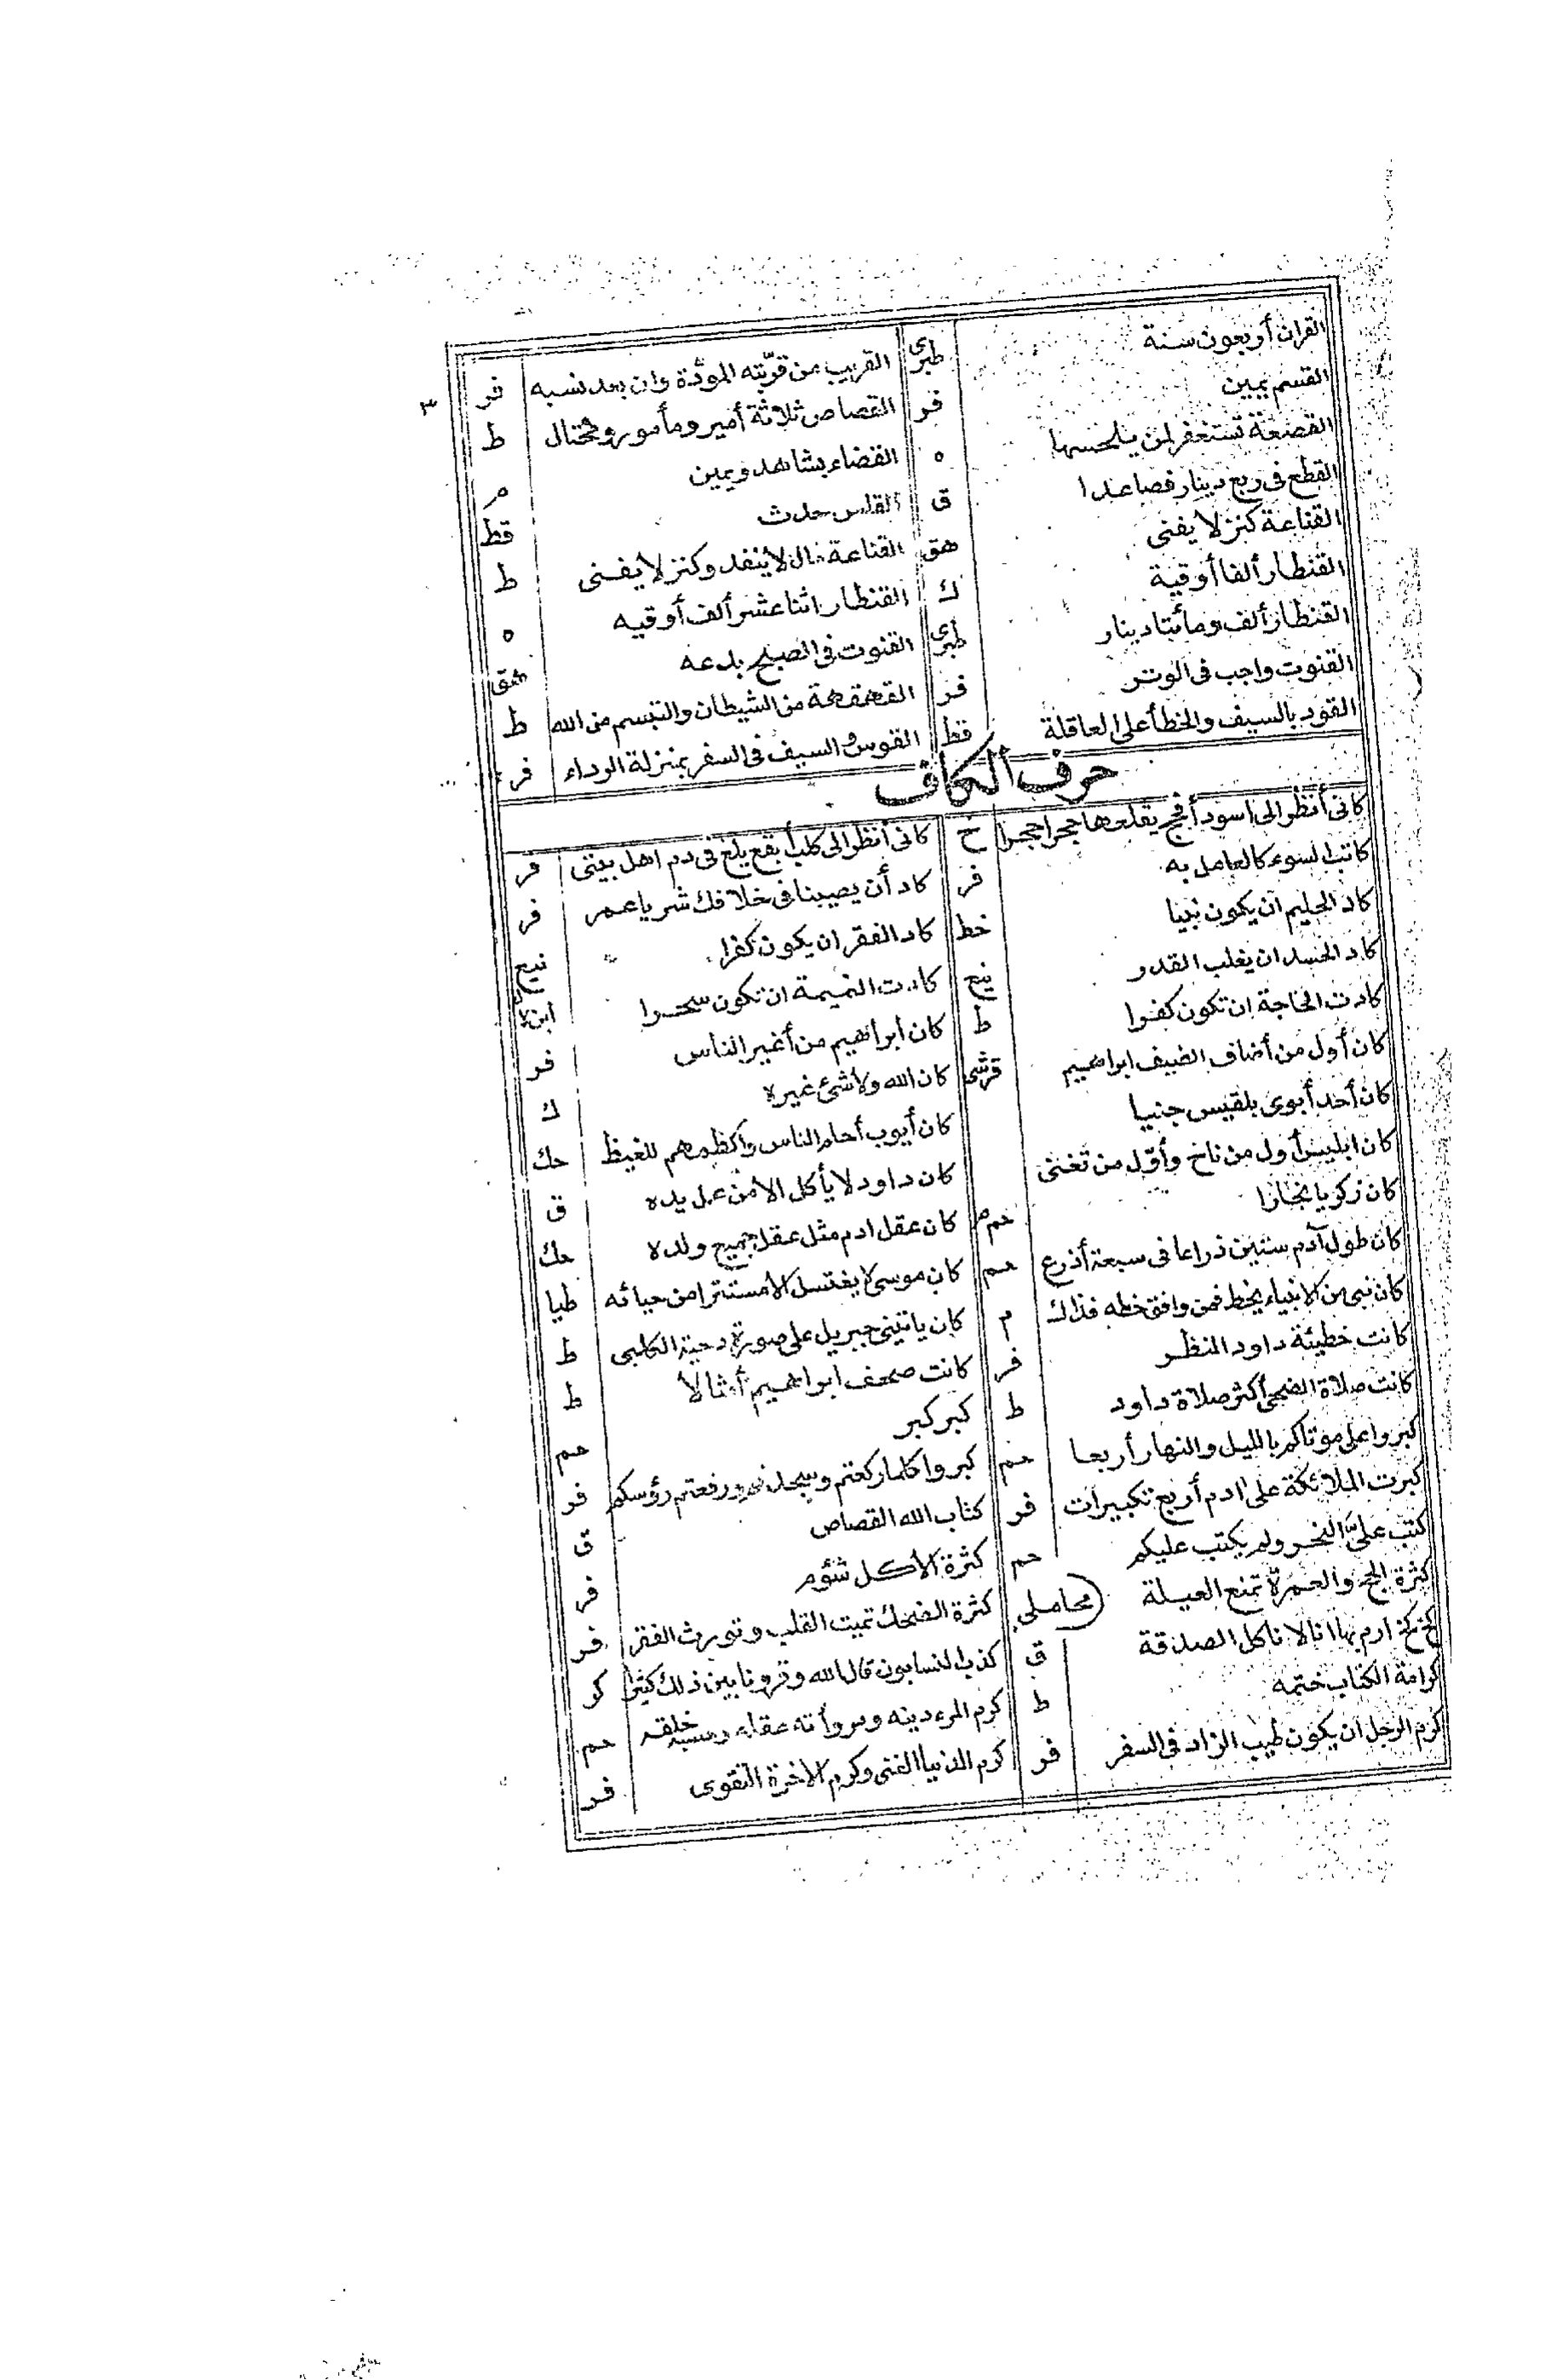 القران أربعون سنة طبرى القريب من قرّبته المودّة وان بعد نسبه فر
القسم يمين فر القصاص ثلاثة أمير ومأمور ومختال ط
القصعة تستغفر لمن يلحسها ه القضاء بشاهد ويمين م
القطع فى ربع دينار فصاعدا ق القلس حدث قط
القناعة كنز لا يفنى هق القناعة مال لا ينفد وكنز لا يفنى ط
القنطار ألفا أوقية ك القنطار اثنا عشر ألف أوقيه ه
القنطار ألف ومائتا دينار طبرى القنوت فى الصبح بدعه هق
القنوت واجب فى الوتر فر القهقهة من الشيطان والتبسم من الله ط
القود بالسيف والخطأ على العاقلة قط القوس والسيف فى السفر بمنزلة الرداء فر
حرف الكاف
كانى أنظر الى اسود أفحج يقلعها حجرا حجرا خ كانى أنظر الى كلب أبقع يلغ فى دم اهل بيتى فر
كاتب السوء كالعامل به فر كاد أن يصيبنا فى خلافك شر يا عمر فر
كاد الحليم ان يكون نبيا خط كاد الفقر ان يكون كفرا نيع
كاد الحسد ان يغلب القدر نيع كادت النميمة ان تكون سحرا
كادت الحاجة ان تكون كفرا ط كان ابراهيم من أغير الناس فر
كان أول من أضاف الضيف ابراهيم قرشى كان الله ولا شئ غيره ك
كان أحد أبوى بلقيس جنيا كان أيوب أحلم الناس واكظمهم للغيظ حك
كان ابليس أول من ناح وأوّل من تغنى كان داود لا يأكل الا من عمل يده ق
كان زكريا نجارا حم م كان عقل ادم مثل عقل جميع ولده حك
كان طول آدم ستين ذراعا فى سبعة أذرع حم كان موسى لا يغتسل الا مستترا من حيائه طيا
كان نبى من الانبياء يخط فمن وافق خطه فذاك م كان ياتينى جبريل على صورة دحية الكلبى ط
كانت خطيئة داود النظر فر كانت صحف ابراهيم أمثالا ط
كانت صلاة الضحى أكثر صلاة داود ط كبر كبر حم
كبروا على موتاكم بالليل والنهار أربعا حم كبروا كلما ركعتم وسجدتم ورفعتم رؤسكم فر
كبرت الملائكة على ادم أربع تكبيرات فر كتاب الله القصاص ق
كتب علىّ النحر ولم يكتب عليكم حم كثرة الأكل شؤم فر
كثرة الحج والعمرة تمنع العيلة (محاملى) كثرة الضحك تميت القلب وتورث الفقر فر
كخ كخ ارم بها انا لا ناكل الصدقة ق كذب النسابون قال الله وقرونا بين ذلك كثيرا كر
كرامة الكتاب ختمه ط كرم المرء دينه ومروأته عقله وحسبه خلقه حم
كرم الرجل ان يكون طيب الزاد فى السفر فر كرم الدنيا الغنى وكرم الاخرة التقوى فر